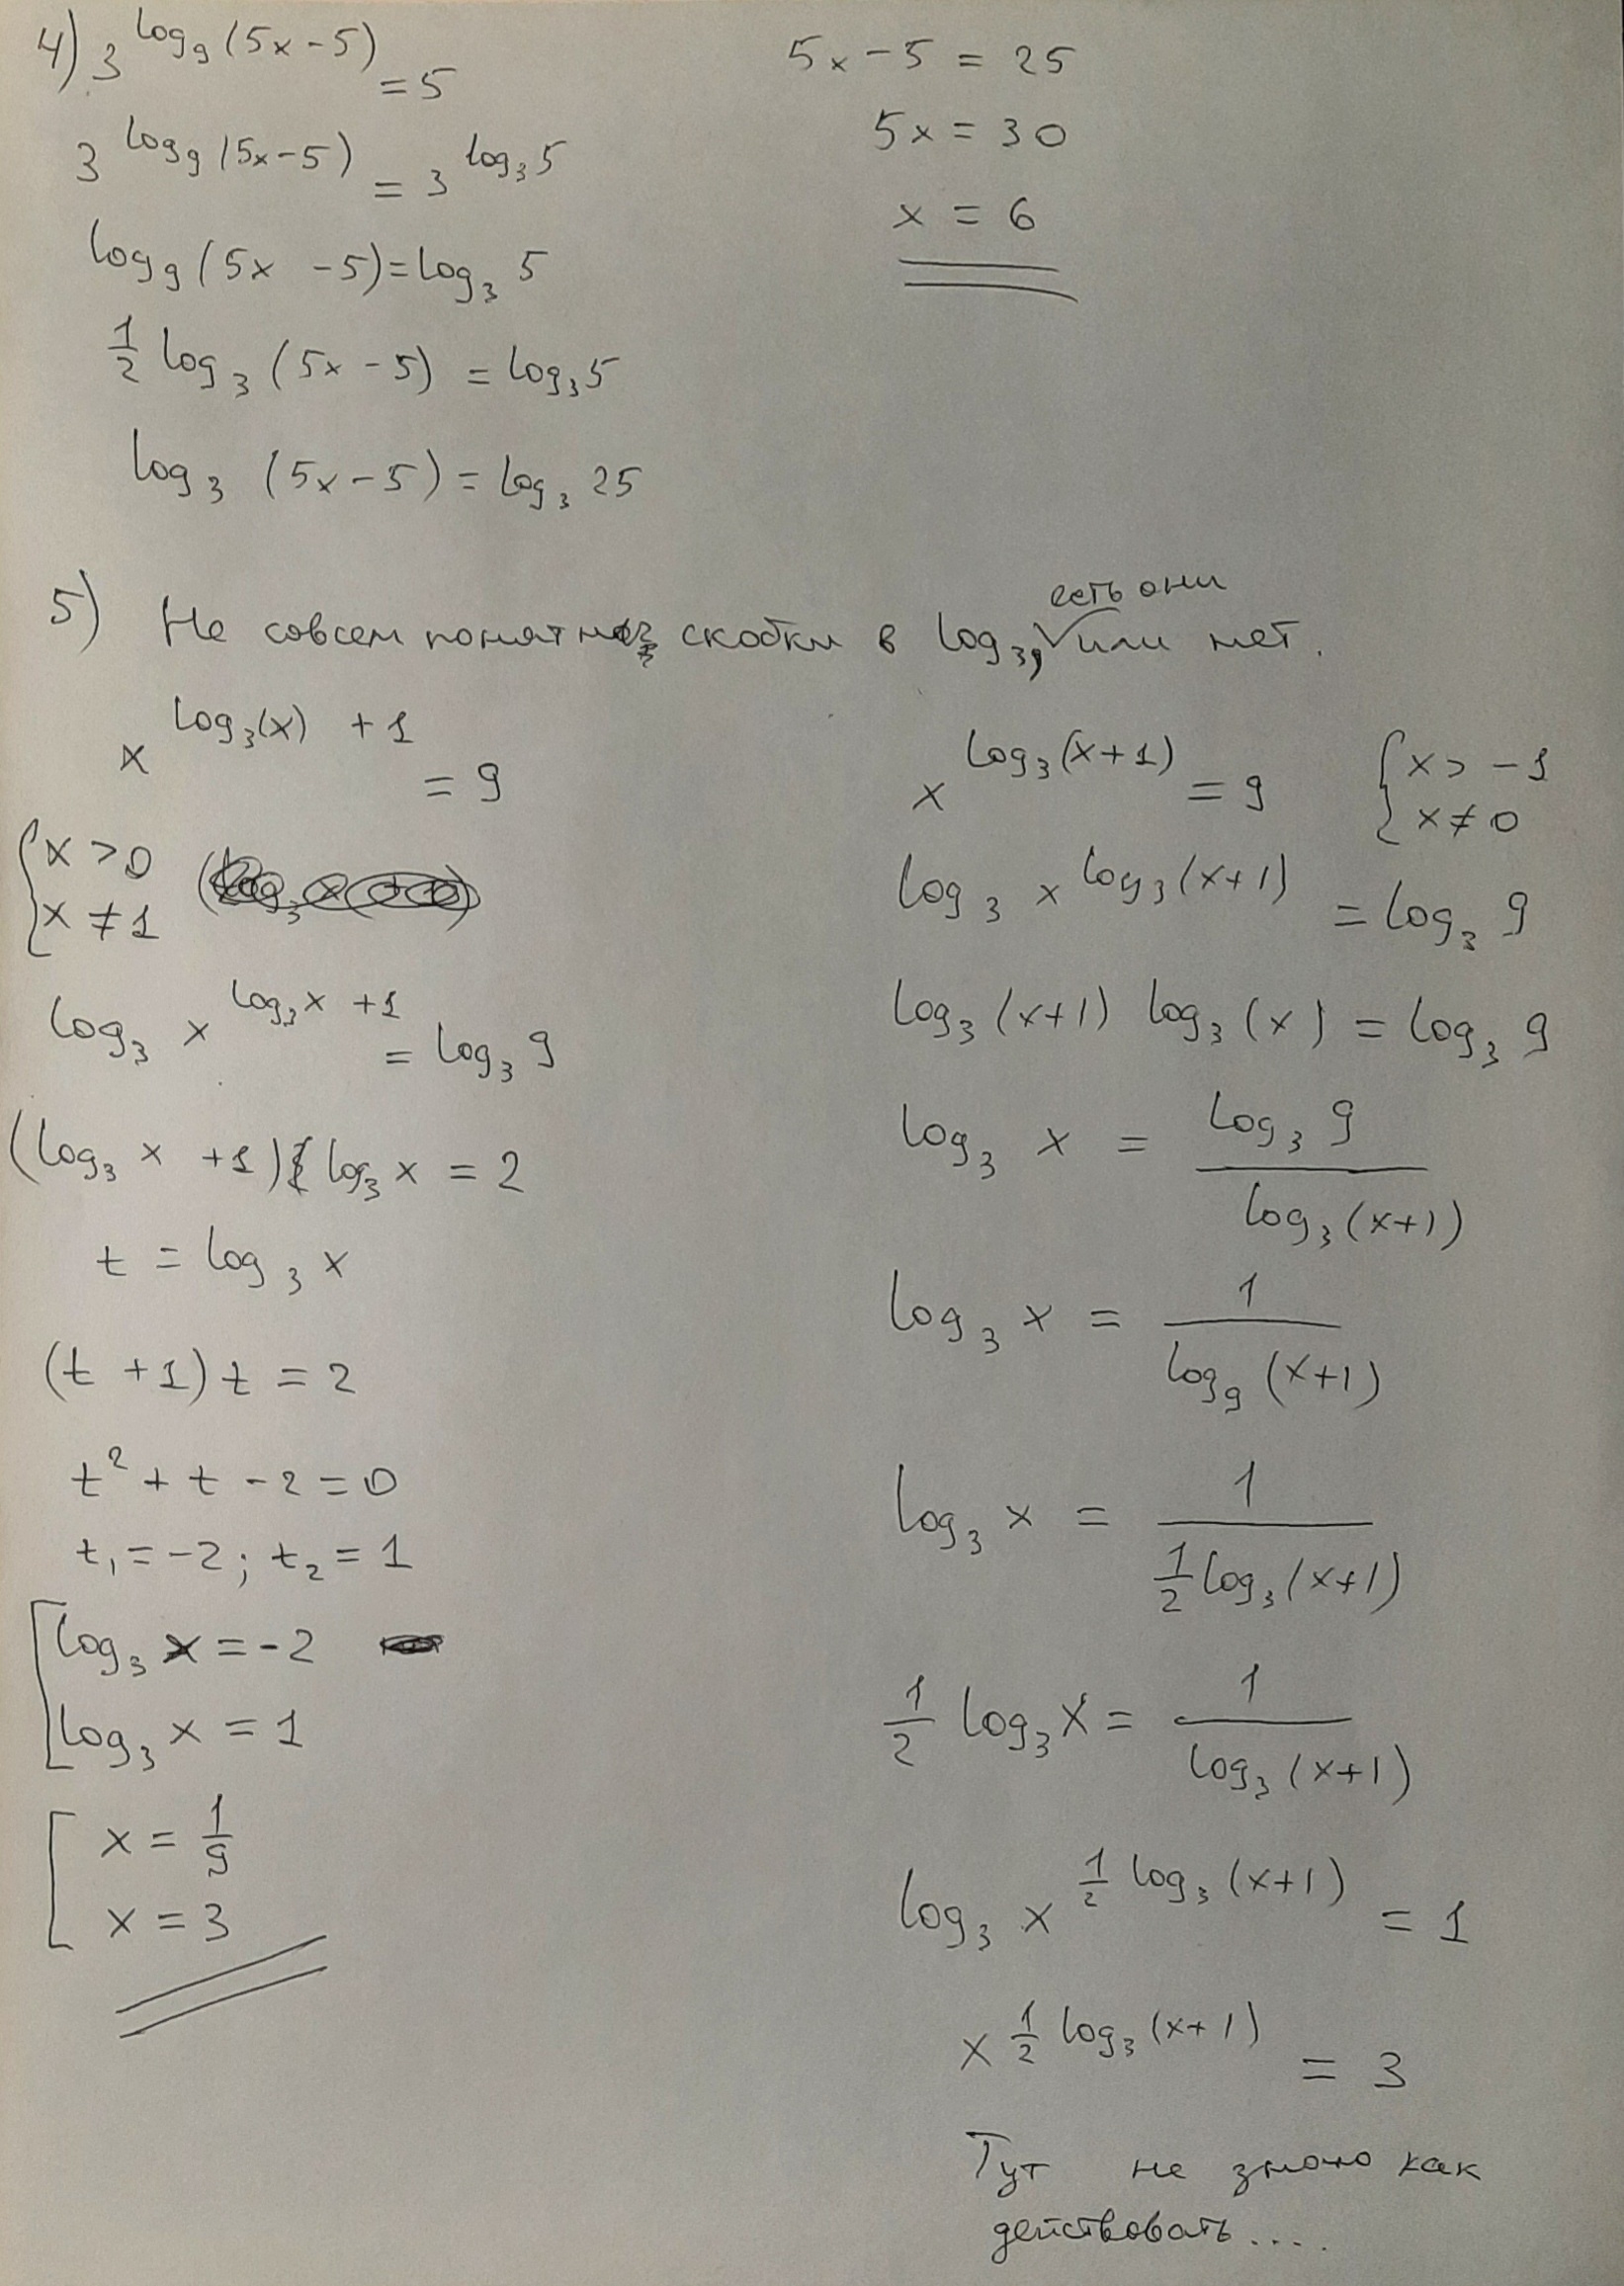 4) 3^{log₉(5x-5)} = 5
3^{log₉(5x-5)} = 3^{log₃5}
log₉(5x -5)=log₃ 5
1/2 log₃ (5x-5) = log₃5
log₃ (5x-5) = log₃ 25
5x-5 = 25
5x = 30
x = 6
5) Не совсем понятно скобки в log₃, есть они или нет.
x^{log₃(x) +1} = 9
{x >0
x ≠ 1
log₃ x^{log₃x +1} = log₃ 9
(log₃ x +1) log₃ x = 2
t = log₃ x
(t +1) t = 2
t² + t - 2 = 0
t₁ = -2; t₂ = 1
[log₃ x = -2
log₃ x = 1
[x = 1/9
x = 3
x^{log₃(x+1)} = 9 {x > -1
x ≠ 0
log₃ x^{log₃(x+1)} = log₃ 9
log₃(x+1) log₃(x) = log₃ 9
log₃ x = log₃ 9 / log₃(x+1)
log₃ x = 1 / log₉ (x+1)
log₃ x = 1 / 1/2 log₃(x+1)
1/2 log₃x = 1 / log₃(x+1)
log₃ x^{1/2 log₃(x+1)} = 1
x^{1/2 log₃(x+1)} = 3
Тут не знаю как
действовать....